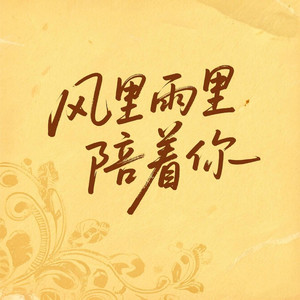 风里雨里
陪着你